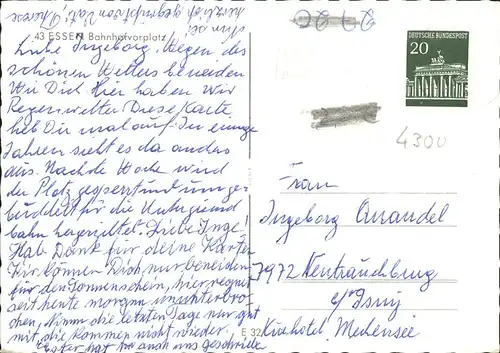 43 ESSEN Bahnhofvorplatz
Liebe Ingeborg, Wegen des
schönen Wetters beneiden
wir Dich. Hier haben wir
Regenwetter. Diese Karte
heb Dir mal auf. In einigen
Jahren sieht es da anders
aus. Nächste Woche wird
der Platz gesperrt und umge-
buddelt für die Untergrund
bahn hergerichtet. Liebe Inge!
Hab Dank für deine Karten
Wir können Dich nur beneiden
für den Sonnenschein, hier regnet
seit heute morgen ununterbro-
chen. Nimm die letzten Tage nur gut
mit die kommen nicht wieder!
hat mir auch uns geschrieben
herzlich gegrüßt von
DEUTSCHE BUNDESPOST
20
4300
Frau
Ingeborg Quandel
7972 Neutrauchburg
b/ Isny
Kurhotel Mechensee
E 32